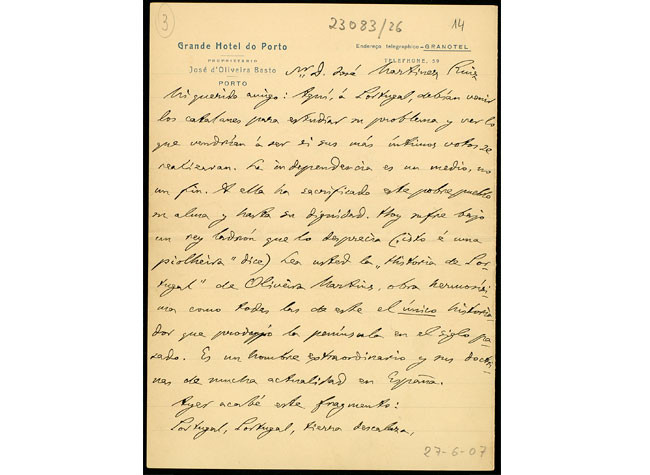 3
23083/26
14
Grande Hotel do Porto
PROPRIETARIO
José d'Oliveira Basto
PORTO
Endereço telegraphico - GRANOTEL
TELEPHONE, 39
Sr. D. José Martinez Ruiz
Mi querido amigo: Aquí, á Portugal, debían venir
los catalanes para estudiar su problema y ver lo
que vendrían á ser si sus más íntimos votos se
realizaran. La independencia es un medio, no
un fin. A ella ha sacrificado este pobre pueblo
su alma y hasta su dignidad. Hoy sufre bajo
un rey ladrón que lo desprecia ("isto é una
piolheira" dice) Lea usted la "Historia de Por-
tugal" de Oliveira Martins, obra hermosísi-
ma como todas las de este el único historia-
dor que produjo la península en el siglo pa-
sado. Es un hombre extraordinario y sus doctri-
nas de mucha actualidad en España.
Ayer acabé este fragmento:
Portugal, Portugal, tierra descalza,
27-6-07